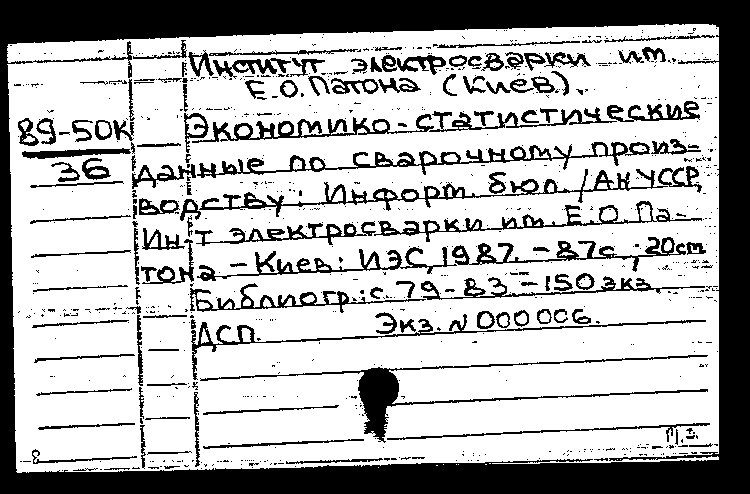 Институт электросварки им.
Е.О.Патона (Киев).
89-50К
36
Экономико-статистические
данные по сварочному произ-
водству: Информ. бюл. /АН УССР,
Ин-т электросварки им. Е.О. Па-
тона. – Киев: ИЭС, 1987. – 87с.; 20см
Библиогр.: с. 79-83 – 150 экз.
ДСП. Экз. N 000006.
8